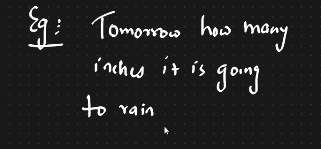 Eg: Tomorrow how many
inches it is going
to rain